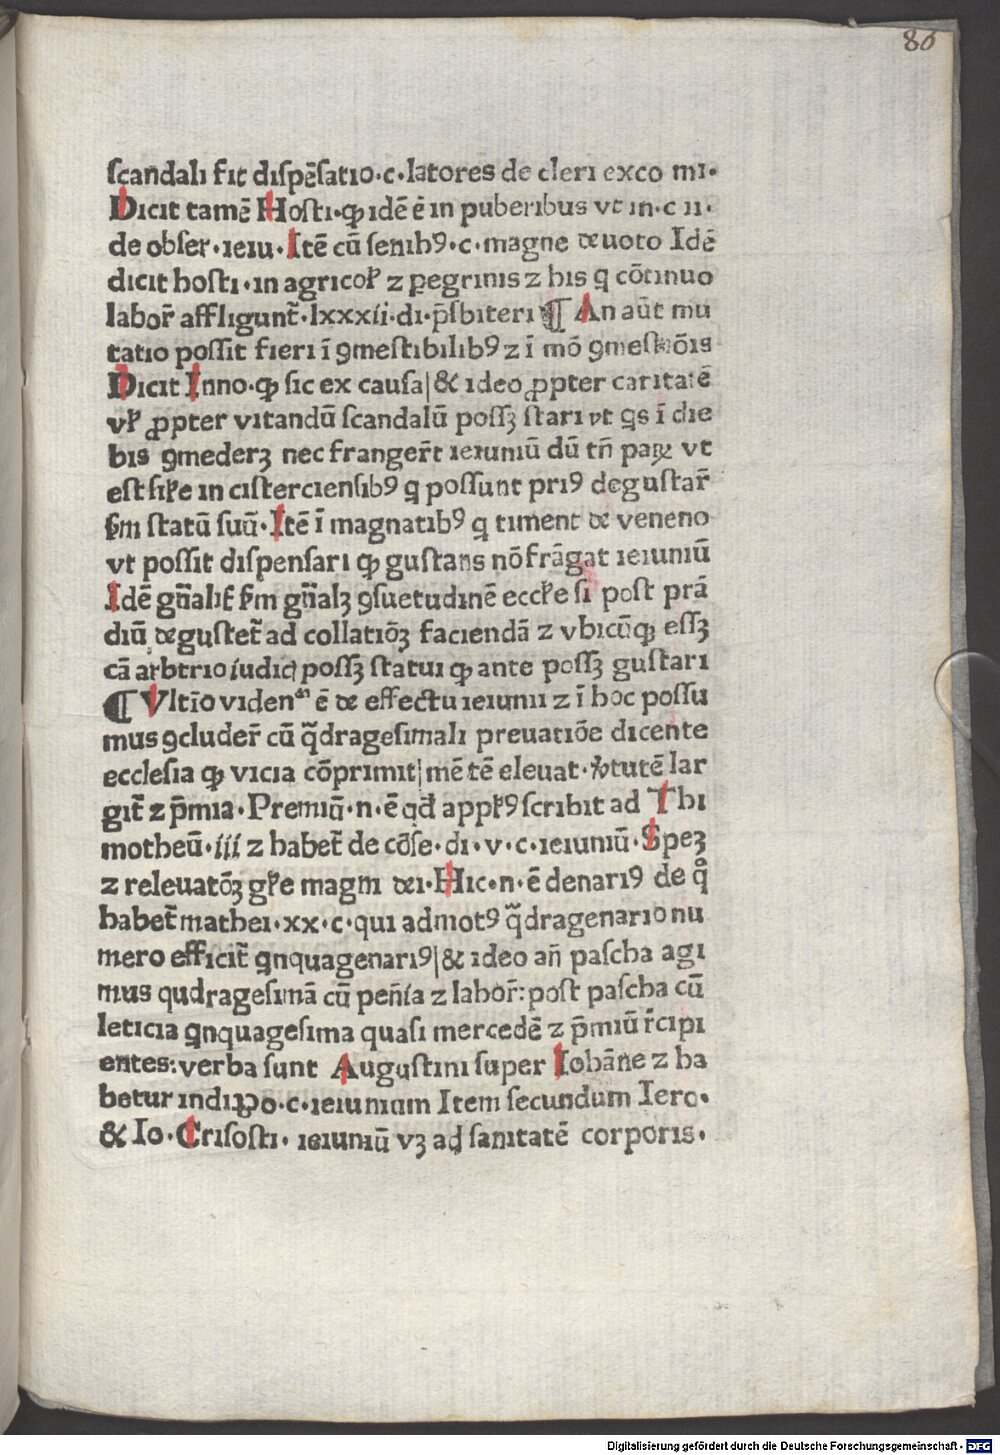 86
scandali fit dispēsatio·c·latores de cleri exco mi·
Dicit tamē Hosti·ꝙ idē ē in puberibus vt in·c ii·
de obser·ieiu·Itē cū senibꝰ·c·magne deuoto Idē
dicit hosti·in agricoł ⁊ pegrinis ⁊ his q cōtinuo
labor̄ affligunt̄·lxxxii·di·p̄sbiteri ¶ An aūt mu
tatio possit fieri ī ꝯmestibilibꝰ ⁊ ī mō ꝯmestiōis
Dicit Inno·ꝙ sic ex causa|& ideo ꝓpter caritatē
vł ꝓpter vitandū scandalū possꝫ stari vt qs ī die
bis ꝯmederꝫ nec franger̄t ieiuniū dū tn̄ paꝝ vt
est siłe in cisterciensibꝰ q possunt priꝰ degustar̄
sm̄ statū suū·Itē ī magnatibꝰ q timent de veneno
vt possit dispensari ꝙ gustans nō frāgat ieiuniū
Idē gn̄alit̄ sm̄ gn̄alꝫ ꝯsuetudinē eccłe si post prā
diū degustet̄ ad collatiōꝫ faciendā ⁊ vbicūꝙ essꝫ
cā arbtrio iudicꝭ possꝫ statui ꝙ ante possꝫ gustari
¶ Vltīo viden ē de effectu ieiunii ⁊ ī hoc possu
mus ꝯcluder̄ cū q̄dragesimali preuatiōe dicente
ecclesia ꝙ vicia cōprimit|mētē eleuat·ꝟtutē lar
git̄ ⁊ p̄mia·Premiū·n·ē qd̄ appłꝰ scribit ad Thi
motheū·iii ⁊ habet̄ de cōse·di·v·c·ieiuniū·Speꝫ
⁊ releuatōꝫ głe magni dei·Hic·n·ē denariꝰ de qͦ
habet̄ mathei·xx·c·qui admotꝰ q̄dragenario nu
mero efficit̄ qnquagenariꝰ|& ideo an̄ pascha agi
mus qudragesimā cū pen̄ia ⁊ labor̄:post pascha cū
leticia qnquagesima quasi mercedē ⁊ p̄miū r̄cipi
entes:verba sunt Augustini super Iohāne ⁊ ha
betur indiꝝo·c·ieiunium Item secundum Iero·
& Io·Crisosti·ieiuniū vꝫ ad sanitatē corporis·
Digitalisierung gefördert durch die Deutsche Forschungsgemeinschaft - DFG